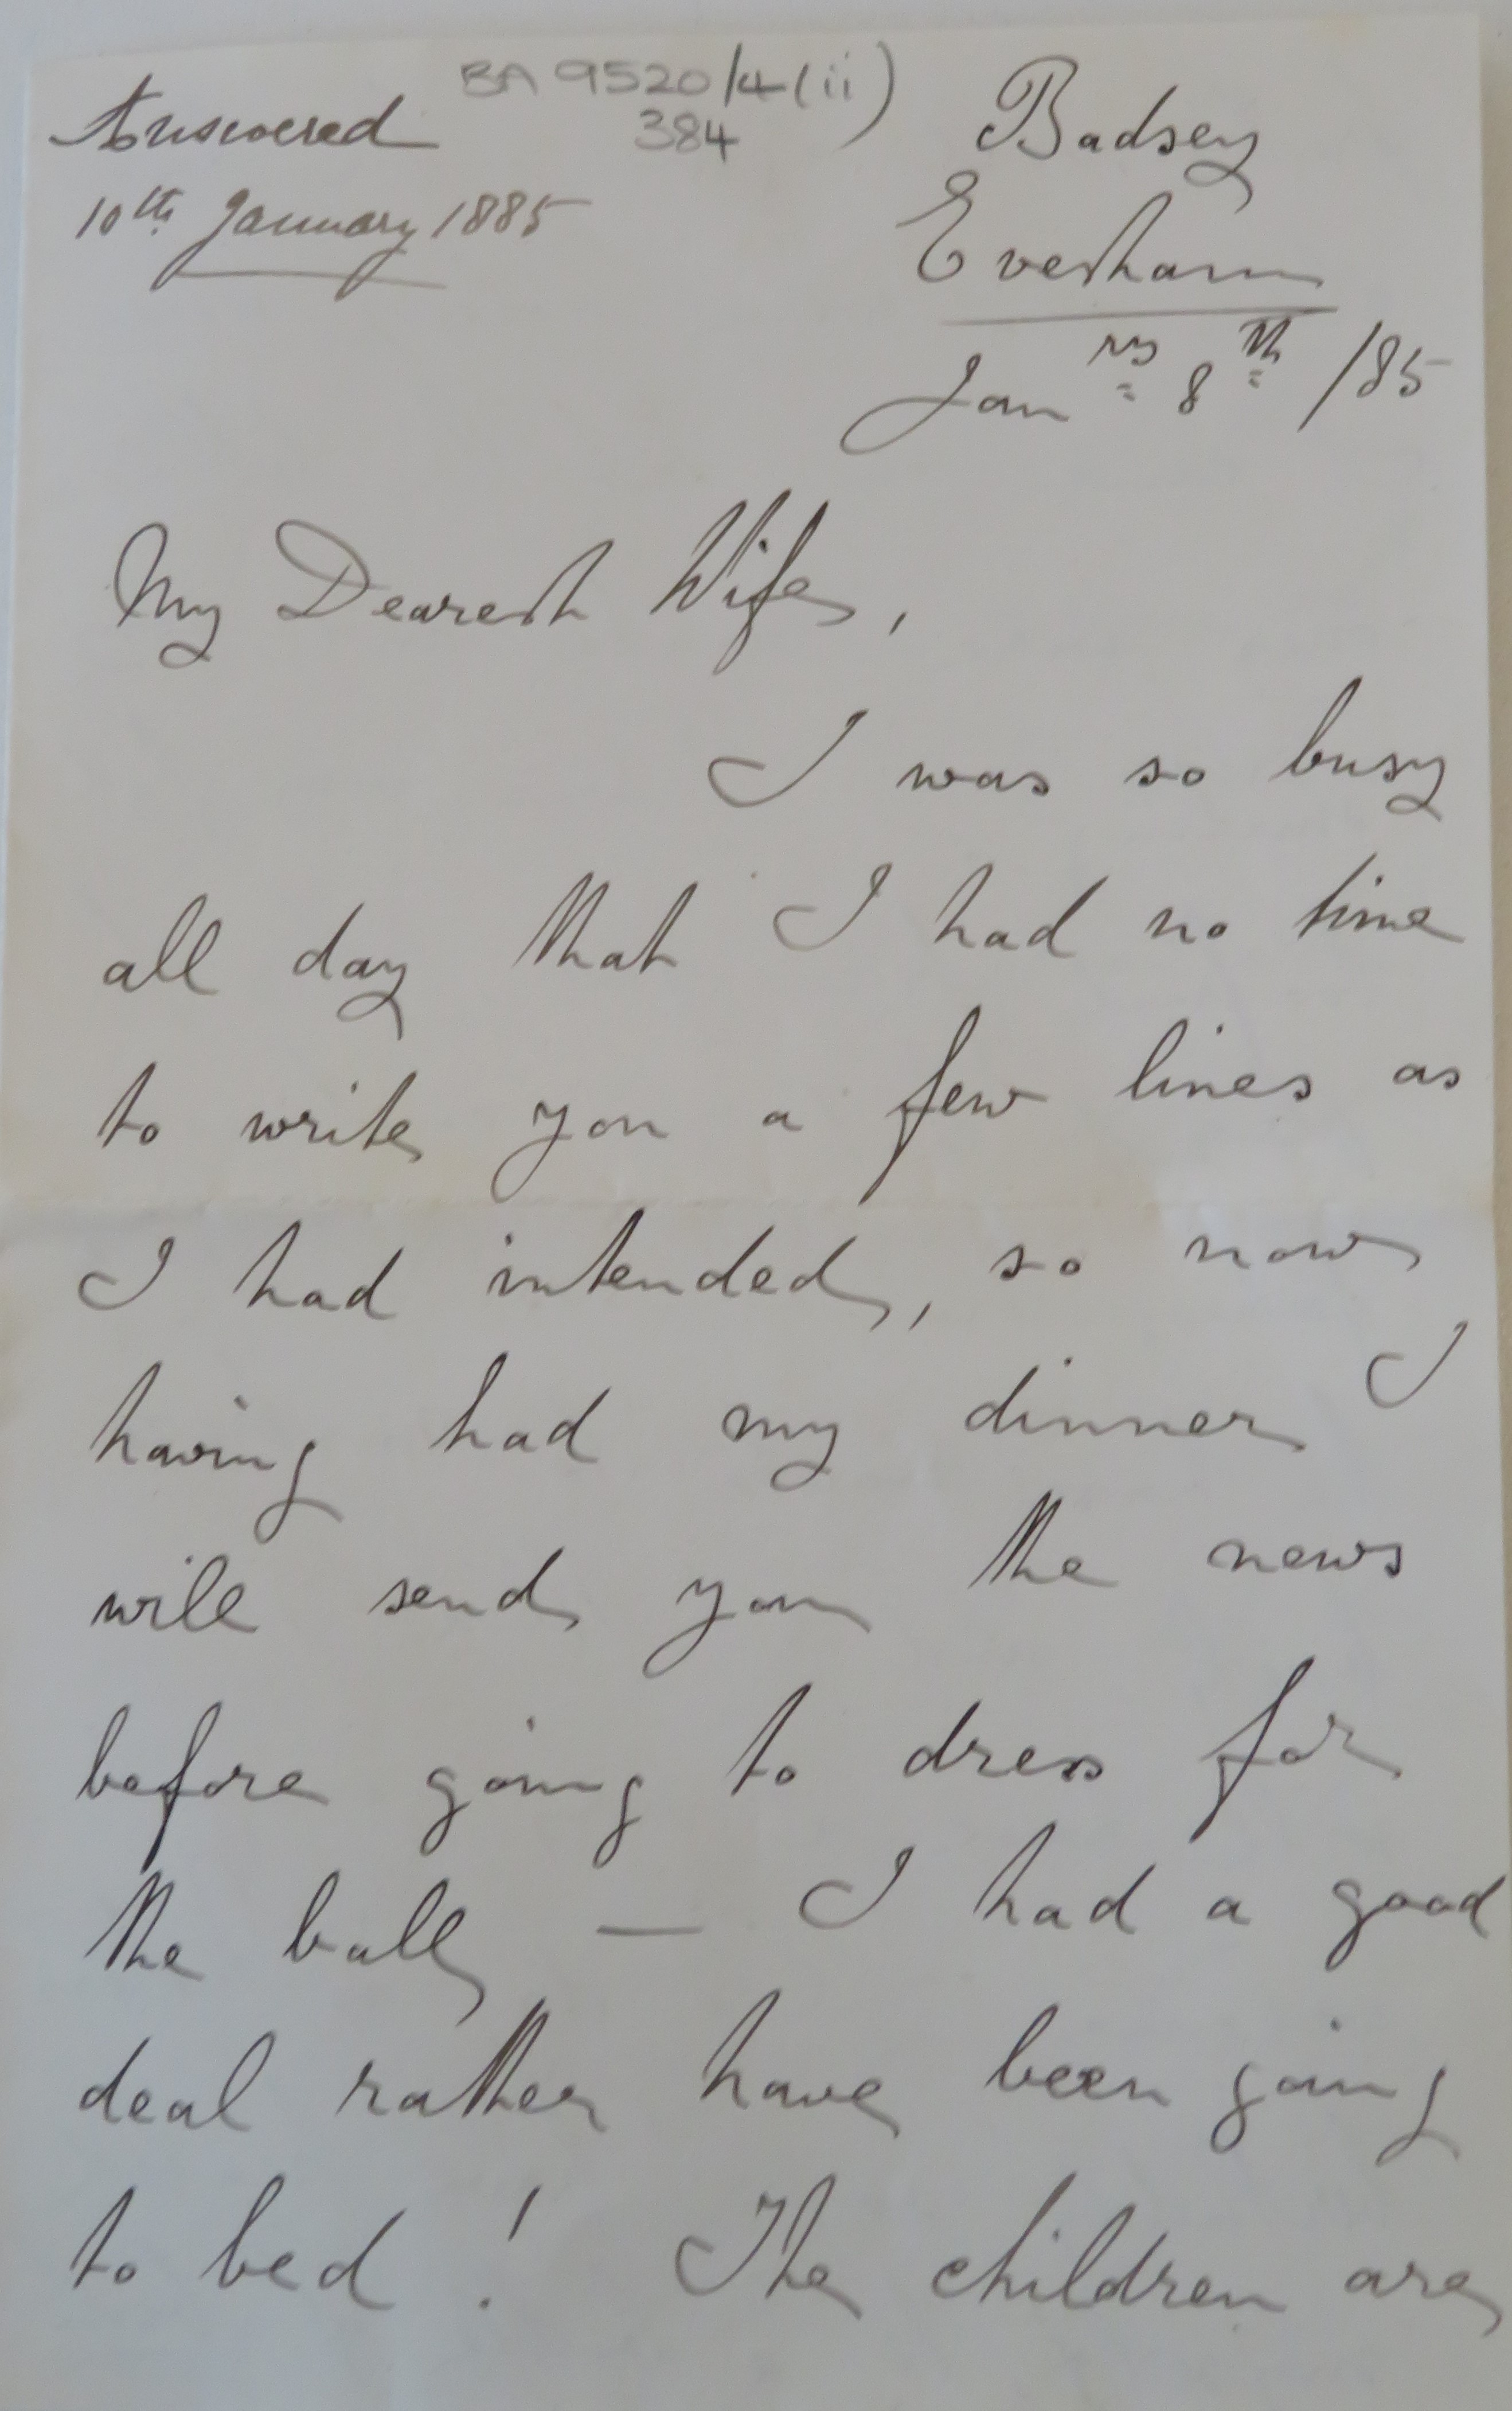 BA 9520/4(ii)
384
Answered
10th January 1885
Badsey
Evesham
Janry 8th /85
My Dearest Wife,
I was so busy
all day that I had no time
to write you a few lines as
I had intended, so now
having had my dinner I
will send you the news
before going to dress for
the ball — I had a good
deal rather have been going
to bed ! The children are